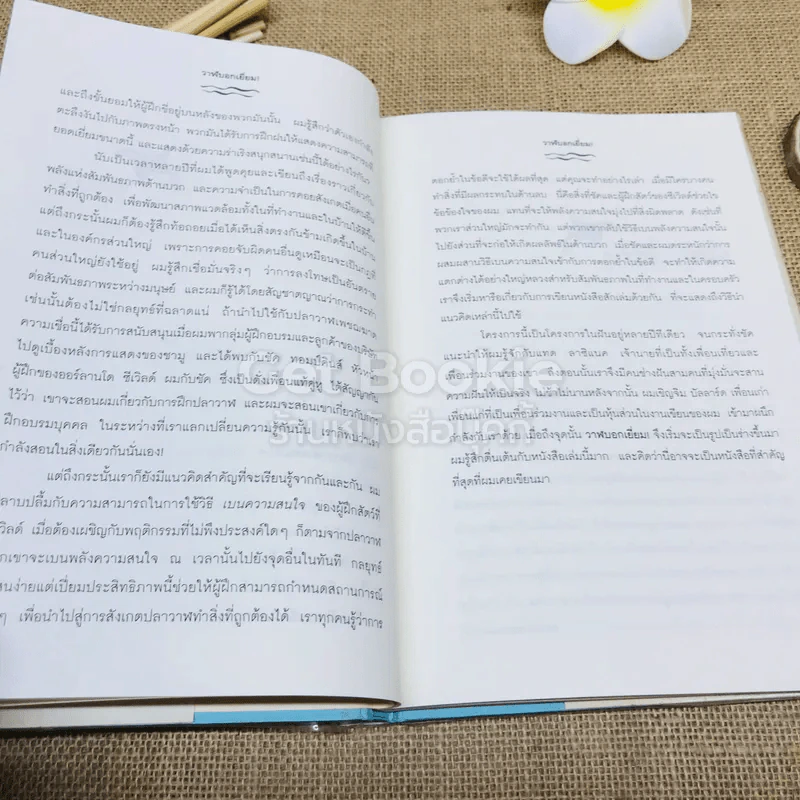 วาฬบอกเยี่ยม!
และถึงขั้นยอมให้ผู้ฝึกขี่อยู่บนหลังของพวกมันนั้น ผมรู้สึกว่าตัวเองกำลัง
ตะลึงงันไปกับภาพตรงหน้า พวกมันได้รับการฝึกฝนให้แสดงความสามารถที่
ยอดเยี่ยมขนาดนี้ และแสดงด้วยความร่าเริงสนุกสนานเช่นนี้ได้อย่างไรกัน
นับเป็นเวลาหลายปีที่ผมได้พูดคุยและเขียนถึงเรื่องราวเกี่ยวกับ
พลังแห่งสัมพันธภาพด้านบวก และความจำเป็นในการคอยสังเกตเมื่อคนอื่น
ทำสิ่งที่ถูกต้อง เพื่อพัฒนาสภาพแวดล้อมทั้งในที่ทำงานและในบ้านให้ดีขึ้น
แต่ถึงกระนั้นผมก็ต้องรู้สึกท้อถอยเมื่อได้เห็นสิ่งตรงกันข้ามเกิดขึ้นในบ้าน
และในองค์กรส่วนใหญ่ เพราะการคอยจับผิดคนอื่นดูเหมือนจะเป็นกฎที่
คนส่วนใหญ่ยังใช้อยู่ ผมรู้สึกเชื่อมั่นจริงๆ ว่าการลงโทษเป็นอันตราย
ต่อสัมพันธภาพระหว่างมนุษย์ และผมก็รู้ได้โดยสัญชาตญาณว่าการกระทำ
เช่นนั้นต้องไม่ใช่กลยุทธ์ที่ฉลาดแน่ ถ้านำไปใช้กับปลาวาฬเพชฌฆาต
ความเชื่อนี้ได้รับการสนับสนุนเมื่อผมพากลุ่มผู้ฝึกอบรมและลูกค้าของบริษัท
ไปดูเบื้องหลังการแสดงของชามู และได้พบกับชัค ทอมป์กินส์ หัวหน้า
ผู้ฝึกของออร์ลานโด ซีเวิลด์ ผมกับชัค ซึ่งเป็นดั่งเพื่อนแท้คู่หู ได้สัญญากัน
ไว้ว่า เขาจะสอนผมเกี่ยวกับการฝึกปลาวาฬ และผมจะสอนเขาเกี่ยวกับการ
ฝึกอบรมบุคคล ในระหว่างที่เราแลกเปลี่ยนความรู้กันนั้น เราก็พบว่าเรา
กำลังสอนในสิ่งเดียวกันนั่นเอง!
แต่ถึงกระนั้นเราก็ยังมีแนวคิดสำคัญที่จะเรียนรู้จากกันและกัน ผม
ลาบปลื้มกับความสามารถในการใช้วิธี เบนความสนใจ ของผู้ฝึกสัตว์ที่
เวิลด์ เมื่อต้องเผชิญกับพฤติกรรมที่ไม่พึงประสงค์ใดๆ ก็ตามจากปลาวาฬ
กเขาจะเบนพลังความสนใจ ณ เวลานั้นไปยังจุดอื่นในทันที กลยุทธ์
สนง่ายแต่เปี่ยมประสิทธิภาพนี้ช่วยให้ผู้ฝึกสามารถกำหนดสถานการณ์
ๆ เพื่อนำไปสู่การสังเกตปลาวาฬทำสิ่งที่ถูกต้องได้ เราทุกคนรู้ว่าการ
วาฬบอกเยี่ยม!
ตอกย้ำในข้อดีจะใช้ได้ผลที่สุด แต่คุณจะทำอย่างไรเล่า เมื่อมีใครบางคน
ทำสิ่งที่มีผลกระทบในด้านลบ นี่คือสิ่งที่ชัคและผู้ฝึกสัตว์ของซีเวิลด์ช่วยไข
ข้อข้องใจของผม แทนที่จะให้พลังความสนใจมุ่งไปที่สิ่งผิดพลาด ดังเช่นที่
พวกเราส่วนใหญ่มักจะทำกัน แต่พวกเขากลับใช้วิธีเบนความสนใจนั้น
ไปยังส่วนที่จะก่อให้เกิดผลลัพธ์ในด้านบวก เมื่อชัคและผมตระหนักว่าการ
ผสมผสานวิธีเบนความสนใจเข้ากับการตอกย้ำในข้อดี จะทำให้เกิดความ
แตกต่างได้อย่างใหญ่หลวงสำหรับสัมพันธภาพในที่ทำงานและในครอบครัว
เราจึงเริ่มหารือเกี่ยวกับการเขียนหนังสือสักเล่มด้วยกัน ที่จะแสดงถึงวิธีนำ
แนวคิดเหล่านี้ไปใช้
โครงการนี้เป็นโครงการในฝันอยู่หลายปีทีเดียว จนกระทั่งชัค
แนะนำให้ผมรู้จักกับแทด ลาซิแนค เจ้านายที่เป็นทั้งเพื่อนเที่ยวและ
เพื่อนร่วมงานของเขา ถึงตอนนั้นเราจึงมีคนช่างฝันสามคนที่มุ่งมั่นจะสาน
ความฝันให้เป็นจริง ในไม่นานหลังจากนั้น ผมเชิญจิม บัลลาร์ด เพื่อนเก่า
เพื่อนแก่ที่เป็นที่หุ้นร่วมงานและเป็นหุ้นส่วนในงานเขียนของผม เข้ามาผนึก
กำลังกับเราด้วย เมื่อถึงจุดนั้น วาฬบอกเยี่ยม! จึงเริ่มจะเป็นรูปเป็นร่างขึ้นมา
ผมรู้สึกตื่นเต้นกับหนังสือเล่มนี้มาก และคิดว่านี่อาจจะเป็นหนังสือที่สำคัญ
ที่สุดที่ผมเคยเขียนมา
Get Bookie
ร้านหนังสือมุกกี้